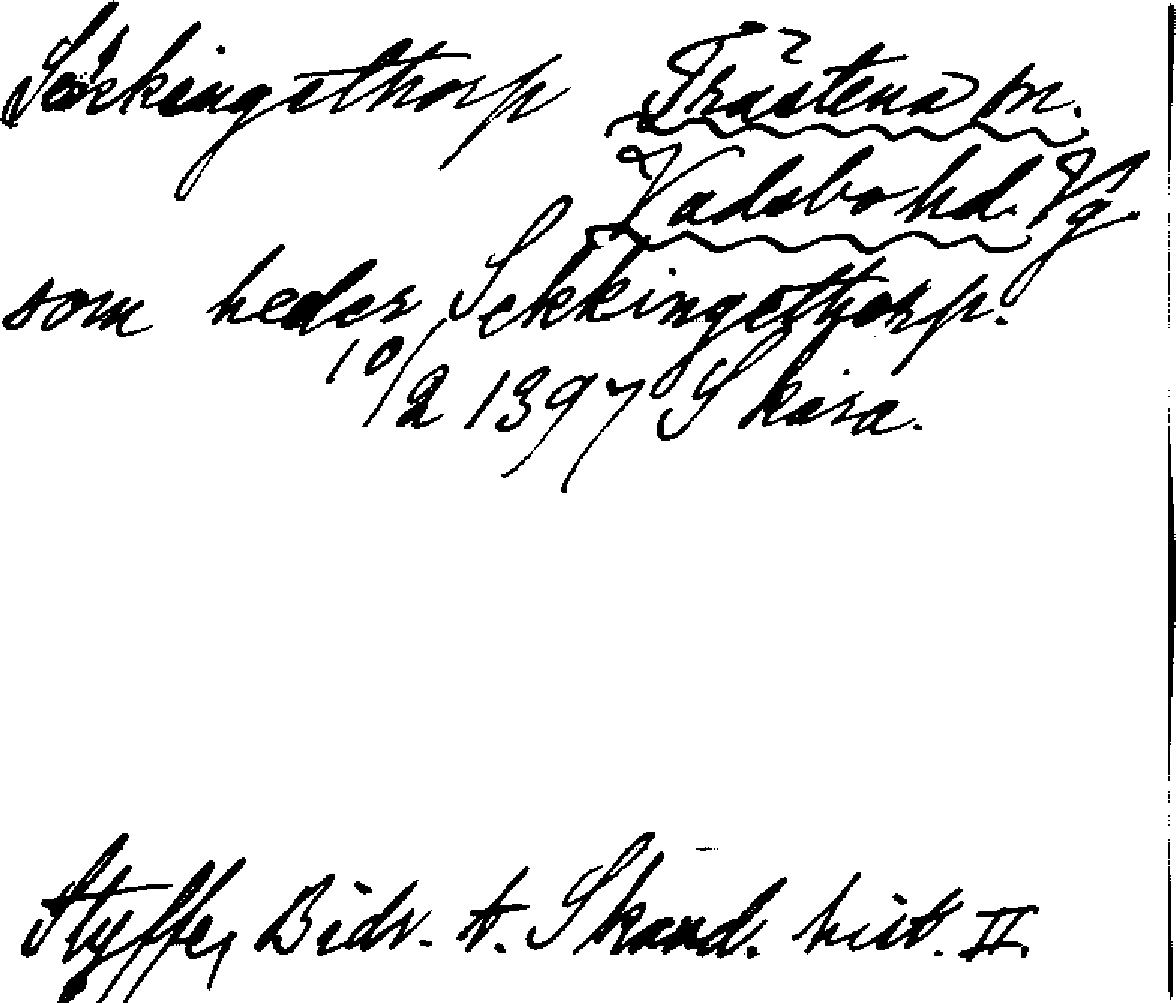 Säckingsthorp Trästena sn.
Vadsbo hd. Vg.
som heder Sekkingxthorp.
10/2 1397 Skara.
Styffe, Bidr. t. Skand. hist. II.